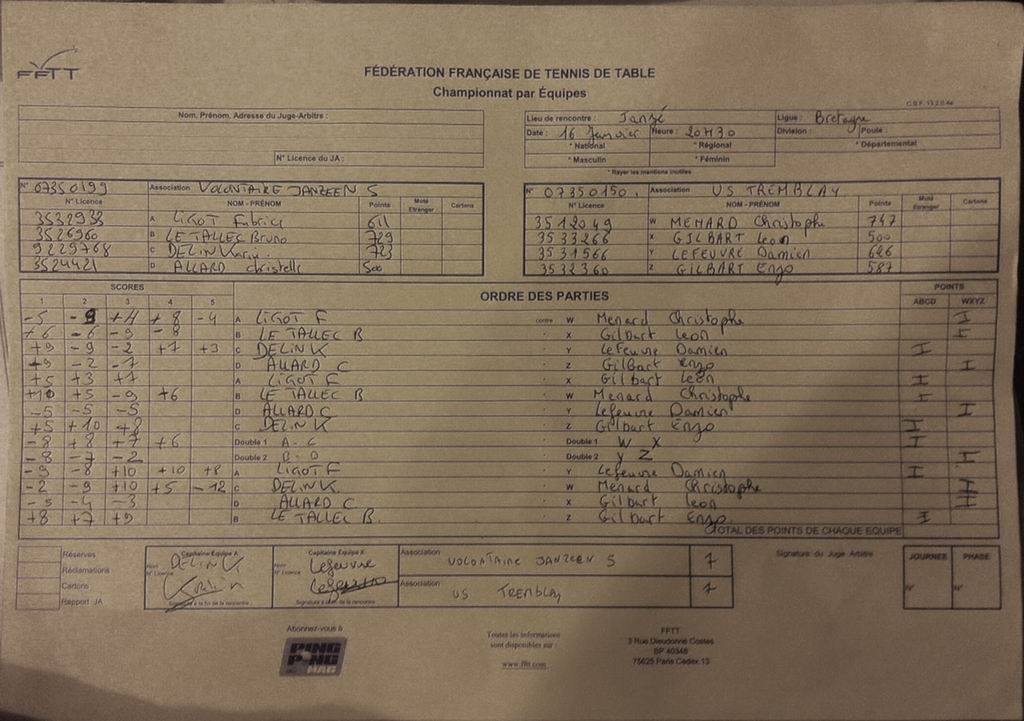 FFTT
FÉDÉRATION FRANÇAISE DE TENNIS DE TABLE
Championnat par Équipes
Nom, Prénom, Adresse du Juge-Arbitre :
N° Licence du JA :
Lieu de rencontre : Janzé Ligue : Bretagne
Date : 16 Janvier Heure : 20H30 Division : Poule :
* National * Régional * Départemental
* Masculin * Féminin
* Rayer les mentions inutiles
N° 07350199 Association VOLONTAIRE JANZEEN 5
N° Licence NOM - PRÉNOM Points Muté Etranger Cartons
3532933 A LIGOT Fabrice 611
3526960 B LE TALLEC Bruno 729
9229768 C DELIN 723
3524421 D ALLARD christelle 500
N° 07350150 Association US TREMBLAY
N° Licence NOM - PRÉNOM Points Muté Etranger Cartons
3512049 W MENARD Christophe 747
3533266 X GILBART Leon 500
3531566 Y LEFEUVRE Damien 626
3532360 Z GILBART Enzo 587
SCORES ORDRE DES PARTIES POINTS
1 2 3 4 5 ABCD WXYZ
-5 -9 +4 +8 -4 A LIGOT F contre W Menard Christophe I
+6 -6 -9 -8 B LE TALLEC B X Gilbart Leon I
+9 -9 -2 +7 +3 C DELIN K Y Lefeuvre Damien I
+9 -2 -7 D ALLARD C Z Gilbart Enzo I
+5 +3 +7 A LIGOT F X Gilbart Leon I
+10 +5 -9 +6 B LE TALLEC B W Menard Christophe I
-5 -5 -5 D ALLARD C Y Lefeuvre Damien I
+5 +10 +8 C DELIN K Z Gilbart Enzo I
-8 +8 +7 +6 Double 1 A - C Double 1 W X I
-8 -7 -2 Double 2 B - D Double 2 Y Z I
-9 -8 +10 +10 +8 A LIGOT F Y Lefeuvre Damien I
-2 -9 +10 +5 -12 C DELIN K. W Menard Christophe I
-5 -4 -3 D ALLARD C X Gilbart Leon I
+8 +7 +9 B LE TALLEC B. Z Gilbart Enzo. I
TOTAL DES POINTS DE CHAQUE EQUIPE
Réserves
Réclamations
Cartons
Rapport JA
Capitaine Equipe A
Nom DELIN K
N° Licence
Signature à la fin de la rencontre
Capitaine Equipe X
Nom Lefeuvre
N° Licence
Signature à la fin de la rencontre
Association VOLONTAIRE JANZEEN 5 7
Association US TREMBLAY 7
Signature du Juge Arbitre
JOURNEE PHASE
N° N°
Abonnez-vous à
PING PONG MAG
Toutes les informations
sont disponibles sur :
www.fftt.com
FFTT
3 Rue Dieudonné Costes
BP 40348
75625 Paris Cedex 13